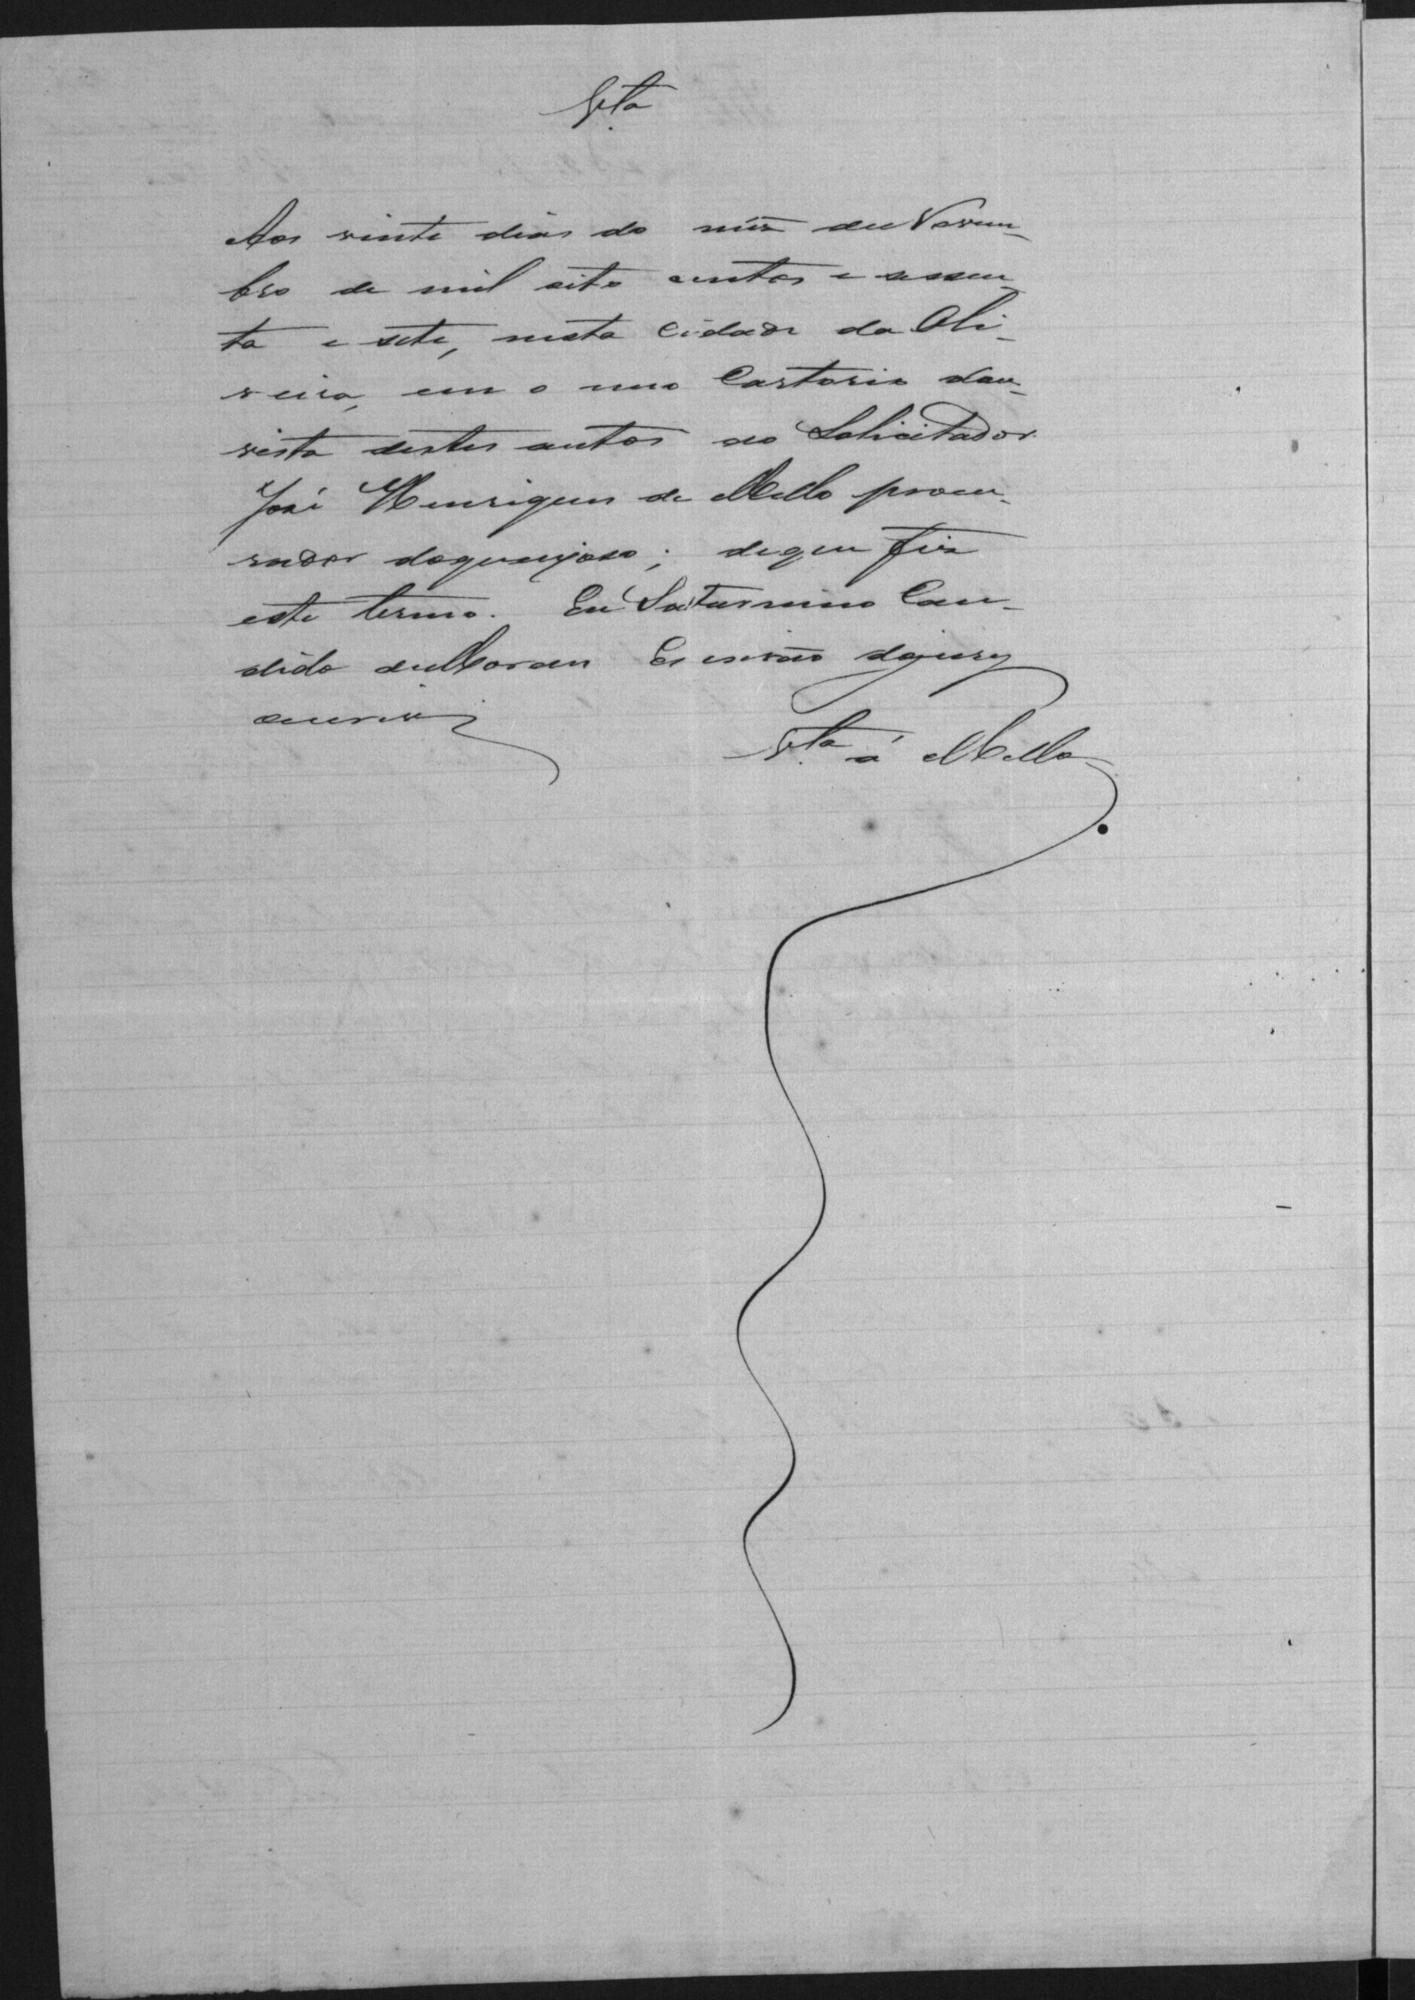 Vta
Aos vinte dias do mês de Novem-
bro de mil oito centos e sessen-
ta e sete, nesta Cidade da Oli-
veira, em o meu Cartorio dou
vista destes autos ao Solicitador
José Henriques de Mello procu-
rador do queixoso; de que fiz
este termo. Eu Saturnino Can-
dido de Moraes Escrivão do jury
escrevi
Vta á Mello